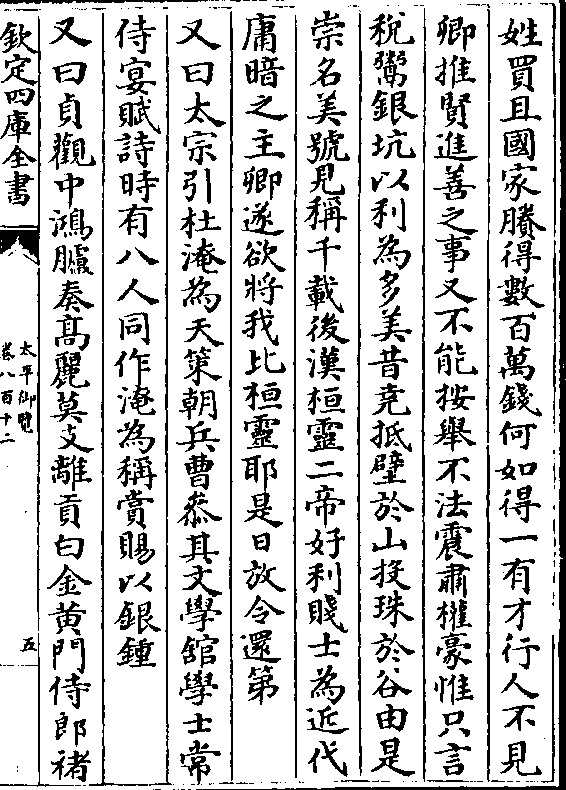 姓買且國家賸得數百萬錢何如得一有才行人不見
卿推賢進善之事又不能按舉不法震肅權豪惟只言
稅鬻銀坑以利為多美昔堯抵璧於山投珠於谷由是
崇名美號見稱千載後漢桓靈二帝好利賤士為近代
庸暗之主卿遂欲將我比桓靈耶是日放令還第
又曰太宗引杜淹為天策朝兵曹叅其文學舘學士常
侍宴賦詩時有八人同作淹為稱賞賜以銀鍾
又曰貞觀中鴻臚奏高麗莫支離貢白金黃門侍郎褚
欽定四庫全書
太平御覽
卷八百十二
五